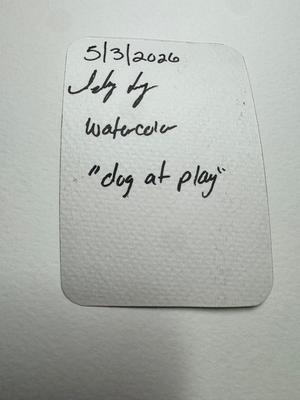 5/3/2026
watercolor
"dog at play"